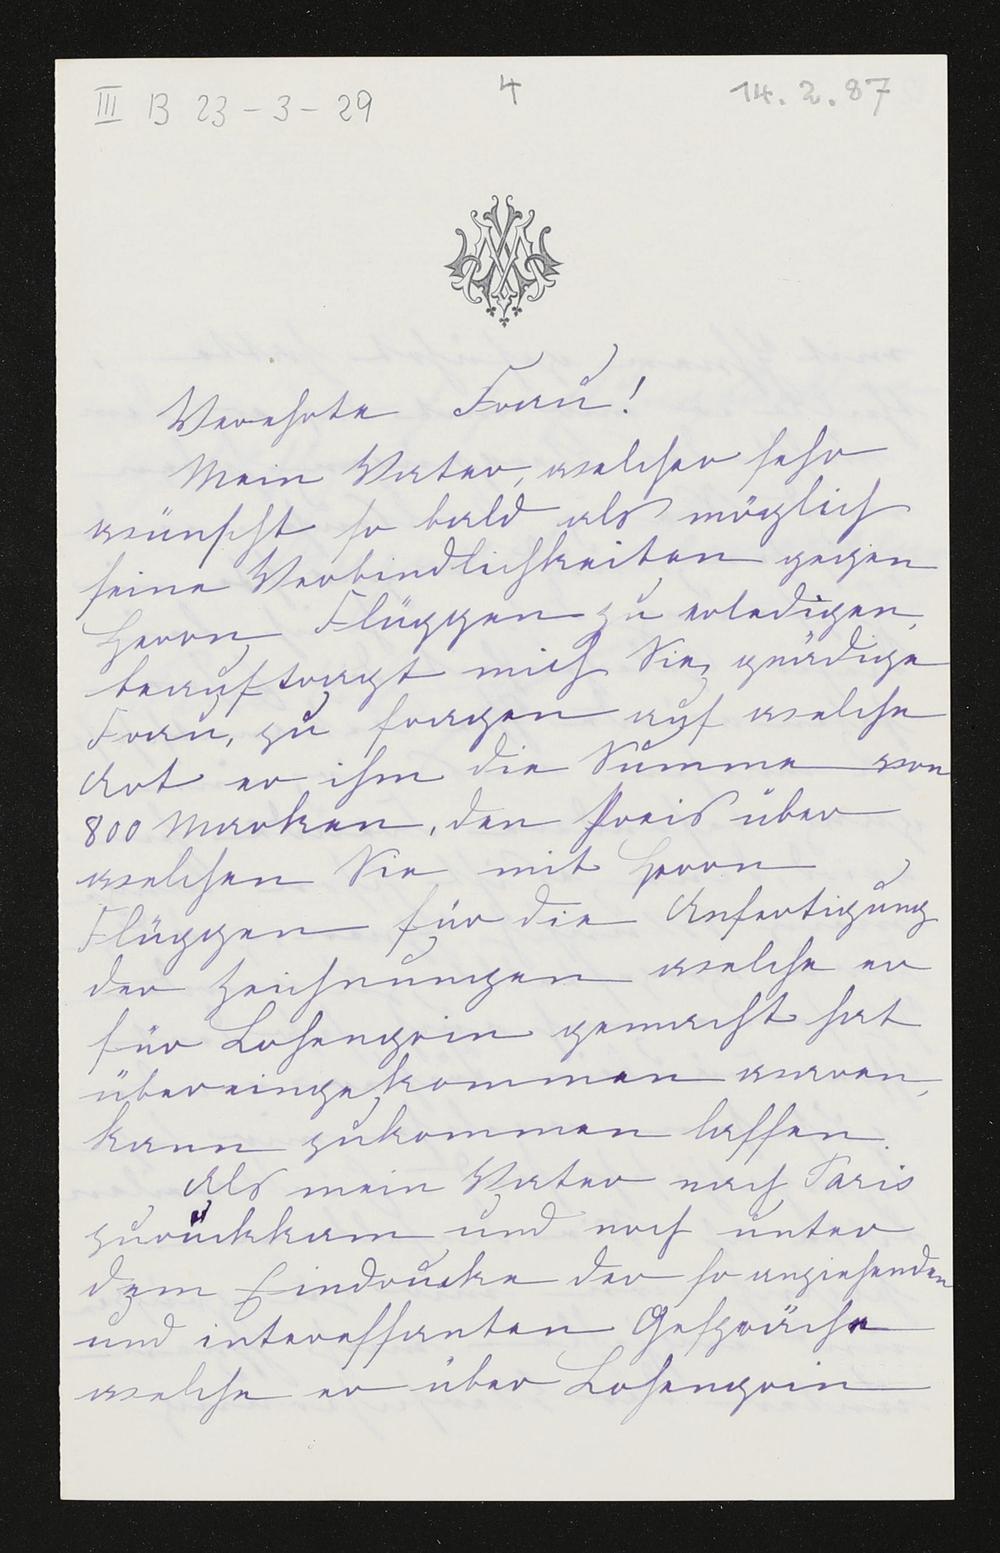 III B 23 - 3 - 29
4
14. 2. 87
Verehrte Frau!
Mein Vater, welcher sehr
wünscht so bald als möglich
seine Verbindlichkeiten gegen
Herrn Flüggen zu erledigen,
beauftragt mich Sie, gnädige
Frau, zu fragen auf welche
Art er ihm die Summe von
800 Marken, den Preis über
welchen Sie mit Herrn
Flüggen für die Anfertigung
der Zeichnungen welche er
für Lohengrin gemacht hat
übereingekommen waren,
kann zukommen lassen.
Als mein Vater nach Paris
zurückkam und noch unter
dem Eindrucke der so anziehenden
und interessanten Gespräche
welche er über Lohengrin